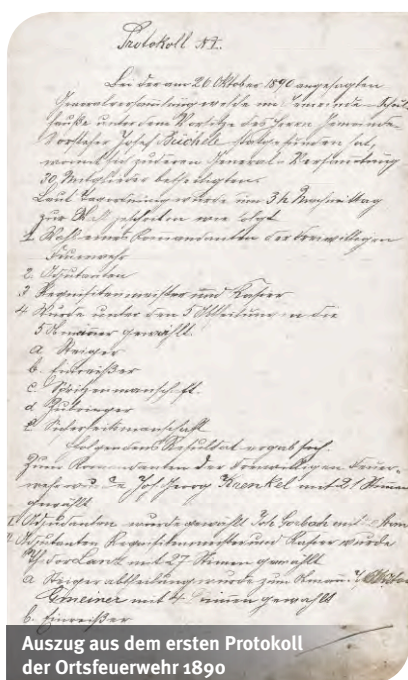 Protokoll N I.
Bei der am 26 Oktober 1890 angesagten
Generalversammlung welche im Gemeinde-Schul
hauße unter dem Vorsitze des Herrn Gemeinde-
Vorsteher Josef Büchele stattgefunden hat,
womit sich zu deren General-Versammlung
30 Mitglieder betheiligten.
Laut Tagordnung wurde um 3h Nachmittag
zur Wahl geschritten wie folgt
1. Wahl eines Kommandanten der Freiwilligen
Feuerwehr
2. Adjutanten
3 Requisitenmeister und Kassier
4 Wurde unter den 5 Abtheilungen die
5 Obmänner gewählt.
a Steiger
b. Einreißer
c. Spritzenmanschaft.
d Zubringer
e Sicherheitsmanschaft
Folgendes Resultat ergab sich.
Zum Komandanten der Freiwilligen Feuer-
wehr Jos. Georg Krenkel mit 21 Stimmen
gewählt
Adjudanten wurde gewählt Joh mit
Adjutanten Requisitenmeister und Kassier wurde
Lantz mit 27 Stimen gewählt
a Steiger abtheilung wurde zum Obman
Gmeiner mit 4 Stimen gewählt
b. Einreißer
Auszug aus dem ersten Protokoll
der Ortsfeuerwehr 1890